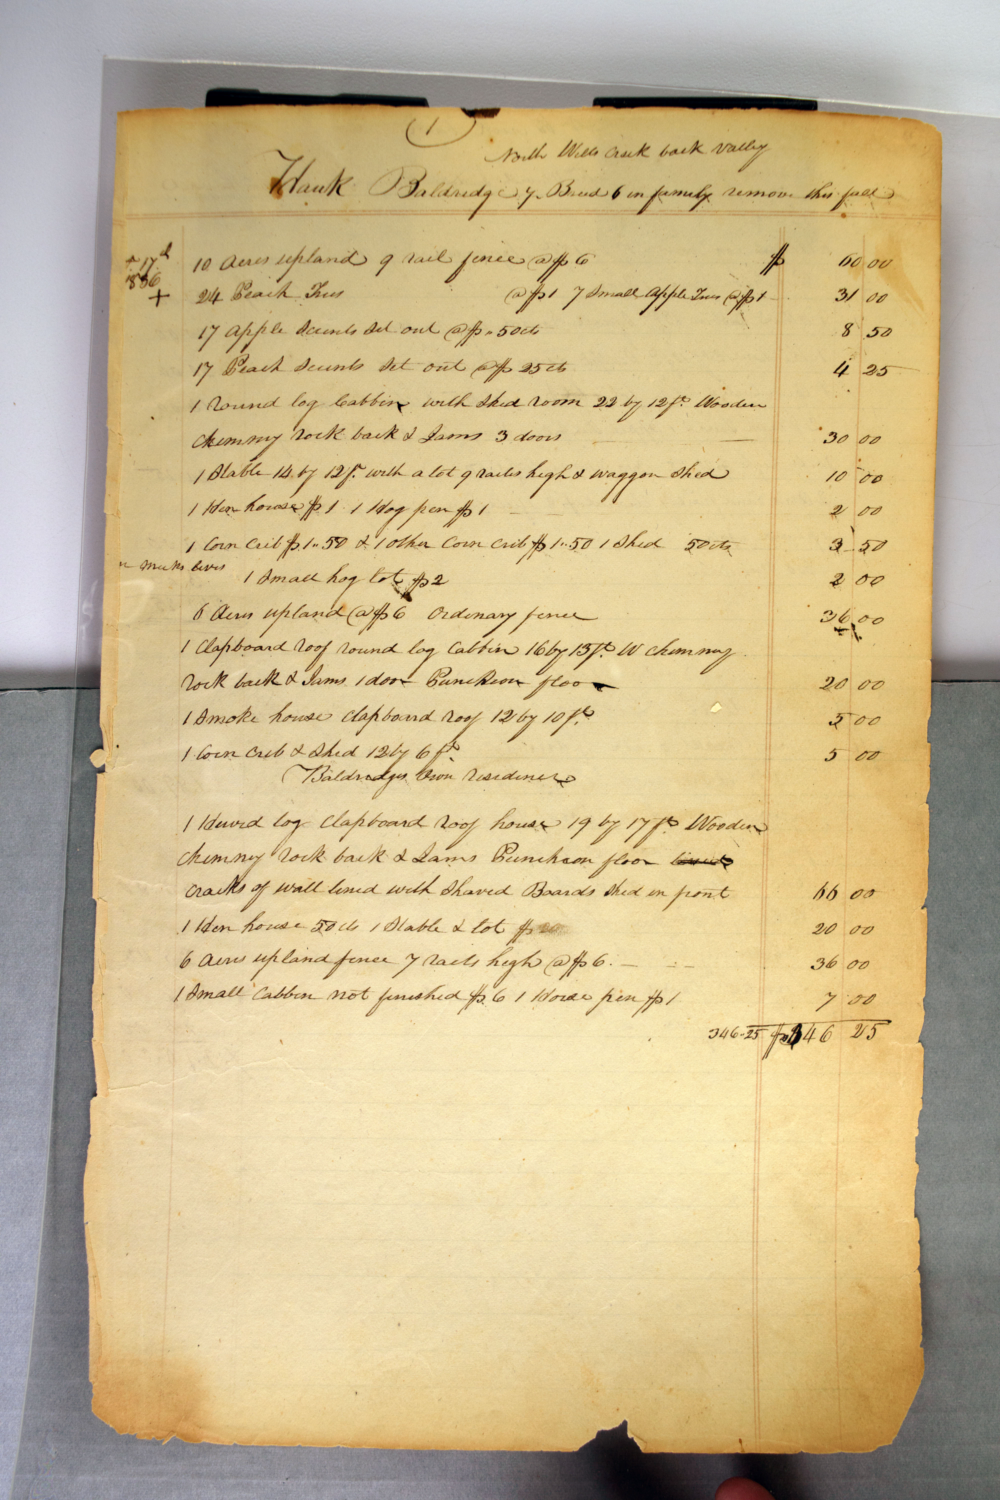 1
North Wills Creek back valley
Hauk Baldredge 6 in family remove this fall
17th
1836
10 Acres upland 9 rail fence @ $6 $ 60 00
+ 24 Peach Trees @ $1 7 Small Apple Trees @ $1 31 00
17 Apple Scients Set out @ $.50cts 8 50
17 Peach Scients Set out @ $ 25cts 4 25
1 round log Cabbin with Shed room 22 by 12 ft. Wooden
Chimney rock back & Jams 3 doors 30 00
1 Stable 14 by 12 ft. with a lot 9 rails high & waggon Shed 10 00
1 Hen house $1 1 Hog pen $1 2 00
1 Corn Crib $1.50 & 1 other Corn Crib $1.50 1 Shed 50cts 3 50
Meeks lives
1 Small hog lot $2 2 00
6 Acres upland @ $6 Ordinary fence 36 00
1 Clapboard roof round log Cabbin 16 by 15 ft. W Chimney
rock back & Jams 1 door Puncheon floor 20 00
1 Smoke house Clapboard roof 12 by 10 ft. 5 00
1 Corn Crib & Shed 12 by 6 ft. 5 00
Baldredges own residence
1 Hewed log Clapboard roof house 19 by 17 ft. Wooden
Chimney rock back & Jams Puncheon floor
cracks of wall lined with Shaved Boards Shed in front 66 00
1 Hen house 50cts 1 Stable & lot $20 20 00
6 Acres upland fence 7 rails high @ $6. 36 00
1 Small Cabbin not finished $6 1 Horse pen $1 7 00
346.25 $346 25